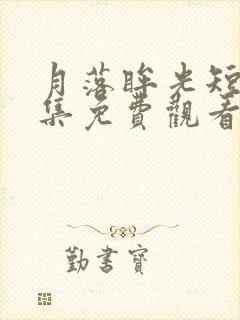 月落眸光短
集免費觀看
勤書寶